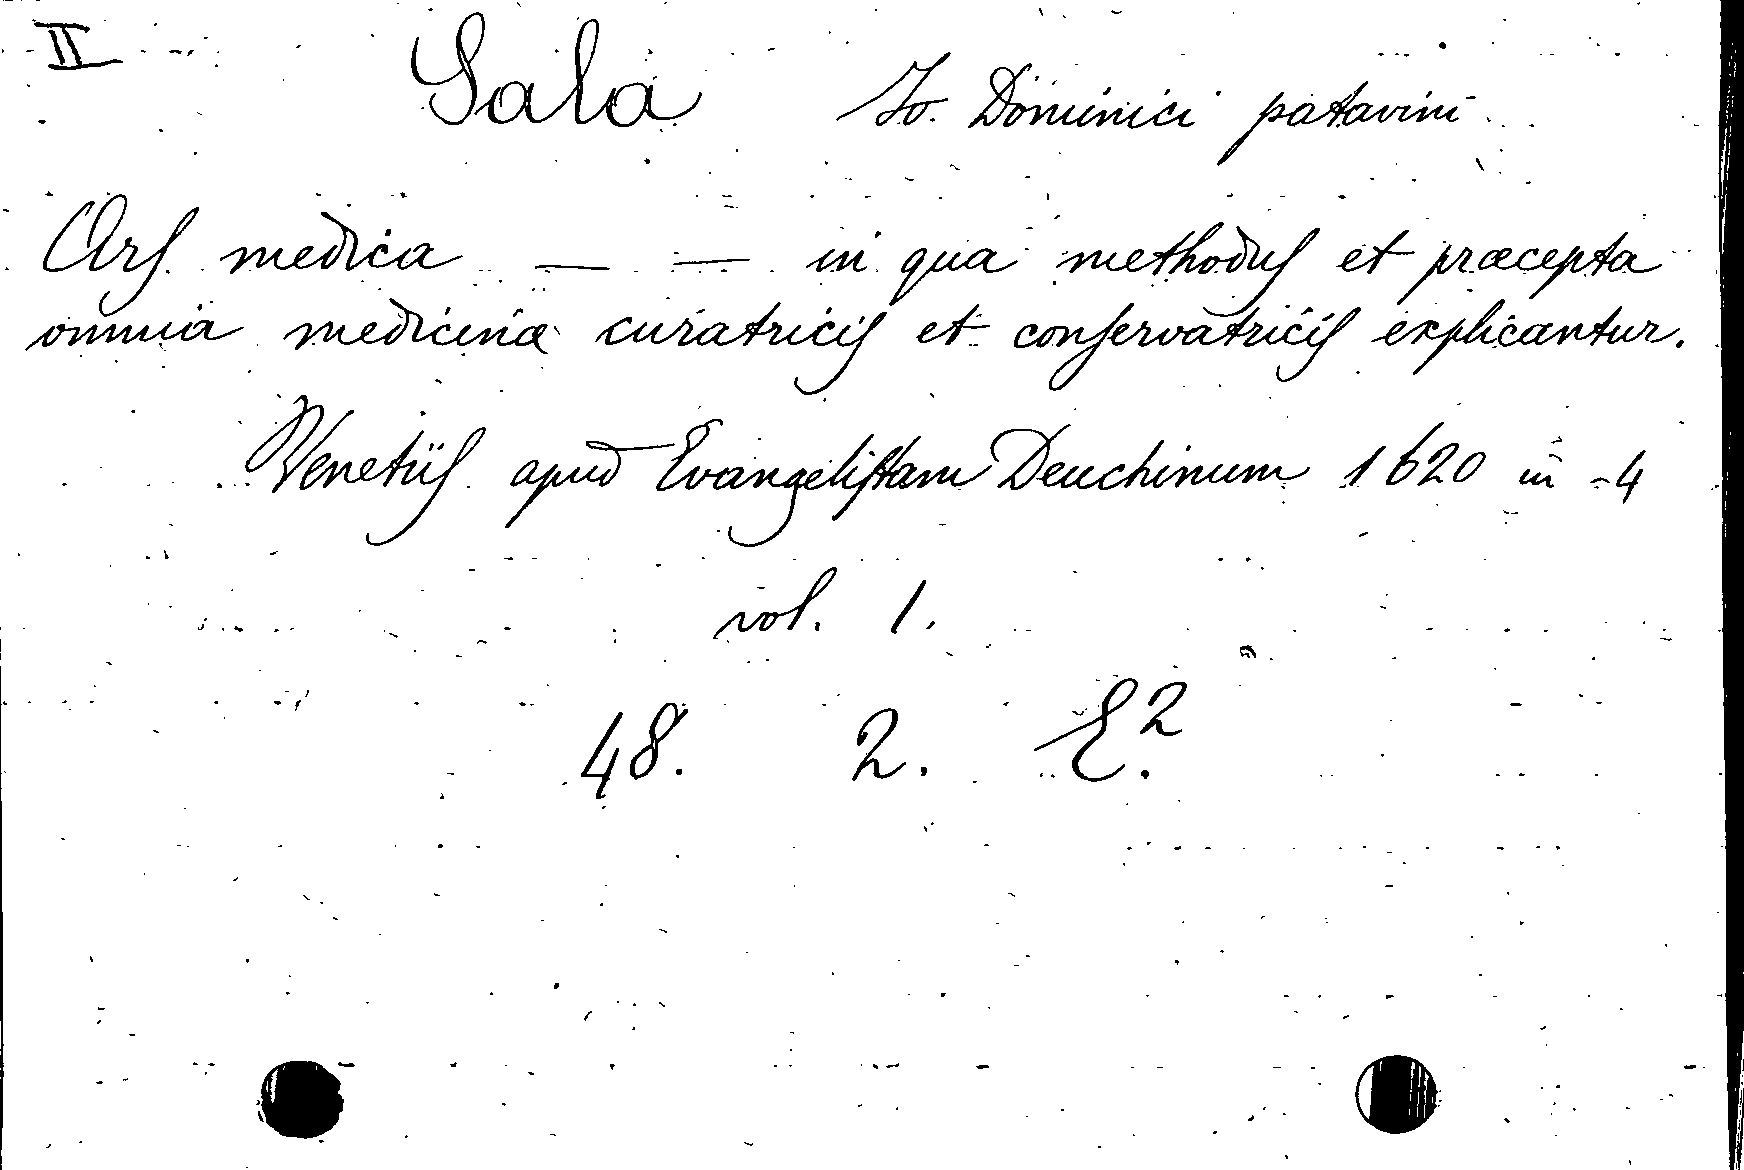 II Sala Jo. Dominici patavini
Ars medica — — in qua methodus et præcepta
omnia medicinæ curatricis et conservatricis explicantur.
Venetiis apud Evangelistam Deuchinum 1620 in -4
vol. 1.
48. 2. E.²